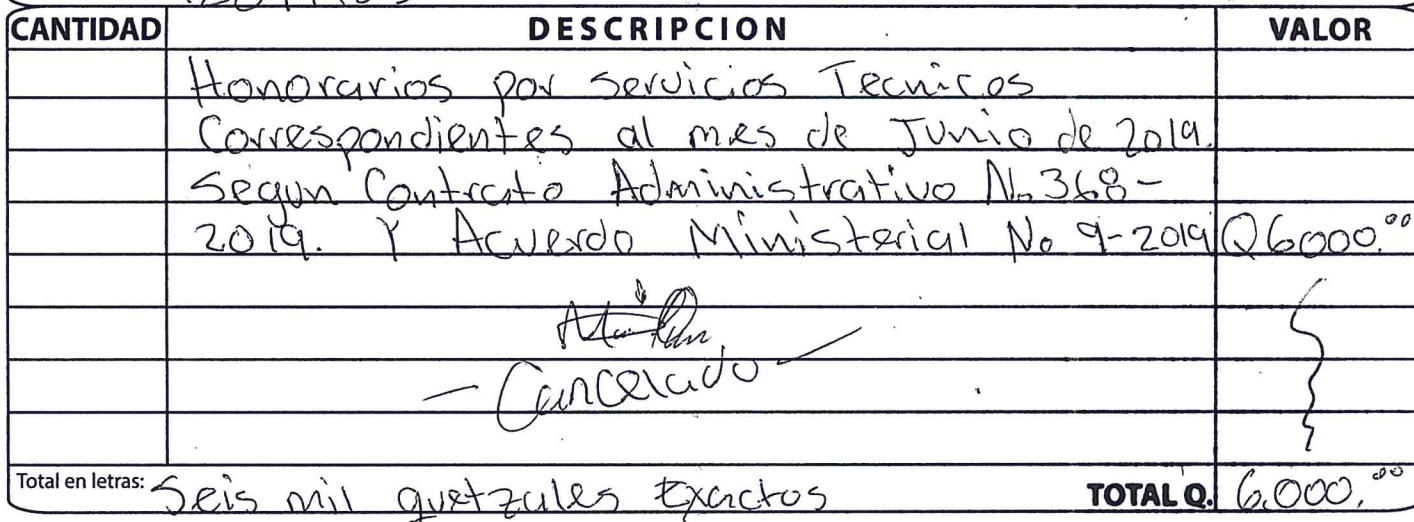 CANTIDAD DESCRIPCION VALOR
Honorarios por servicios Tecnicos
Correspondientes al mes de Junio de 2019.
Segun Contrato Administrativo No 368-
2019. Y Acuerdo Ministerial No 9-2019 Q6000.00
- Cancelado -
Total en letras: Seis mil quetzales Exactos TOTAL Q. 6,000.00